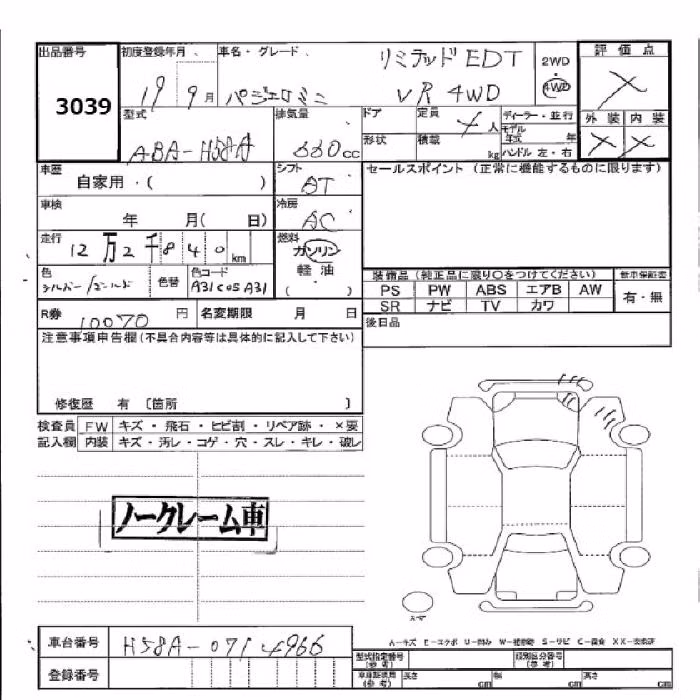 出品番号 初度登録年月 車名・グレード リミテッド EDT 2WD 評価点
3039 19 9月 パジェロミニ VR 4WD 4WD ×
型式 排気量 ドア 定員 4人 ディーラー・並行 外装 内装
ABA-H58A 660cc 形状 積載 kg モデル年式 年 × ×
ハンドル 左・右
車歴 自家用・( ) シフト AT セールスポイント (正常に機能するものに限ります)
車検 年 月( 日) 冷房 AC
走行 12万2千840km 燃料 ガソリン
軽油
( )
色 シルバー/ゴールド 色替 色コード A31C05A31
装備品 (純正品に限り○をつけてください) 新車保証書
PS PW ABS エアB AW 有・無
SR ナビ TV カワ
R券 10070 円 名変期限 月 日 後日品
注意事項申告欄 (不具合内容等は具体的に記入して下さい)
修復歴 有 〔箇所 〕
検査員 FW キズ・飛石・ヒビ割・リペア跡・×要
記入欄 内装 キズ・汚レ・コゲ・穴・スレ・キレ・破レ
ノークレーム車
スペア
車台番号 H58A-0714966
A-キズ E-エクボ U-凹み W-補修跡 S-サビ C-腐食 XX-交換済
登録番号
型式指定番号 (参考) 類別区分番号 (参考)
長さ cm 幅 cm 高さ cm